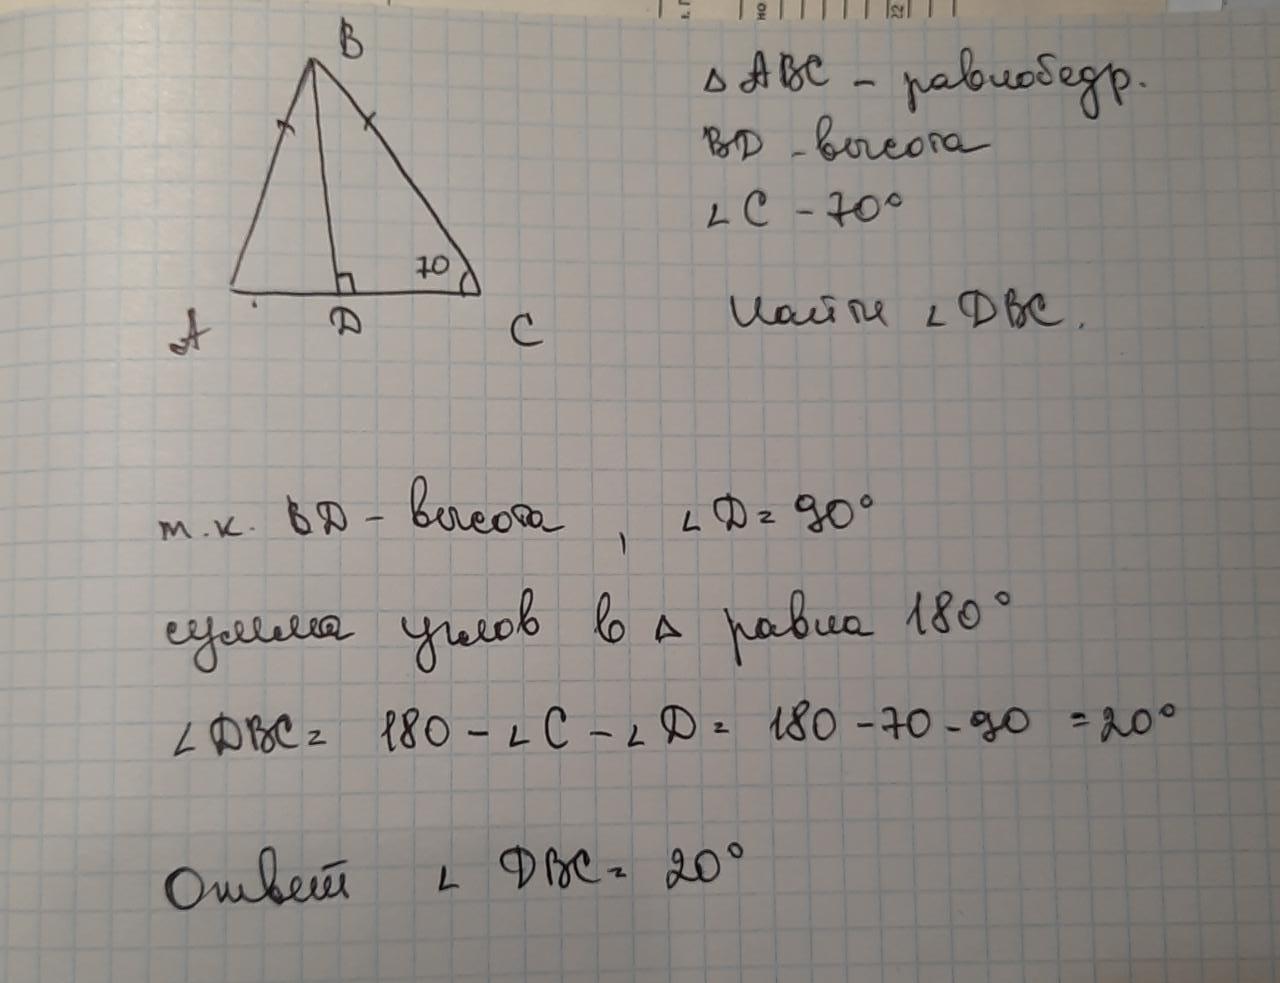 B
△ ABC - равнобедр.
BD - высота
∠ C - 70°
70
A
D
C
Найти ∠ DBC.
т.к. BD - высота, ∠ D = 90°
сумма углов в △ равна 180°
∠ DBC = 180 - ∠ C - ∠ D = 180 - 70 - 90 = 20°
Ответ ∠ DBC = 20°